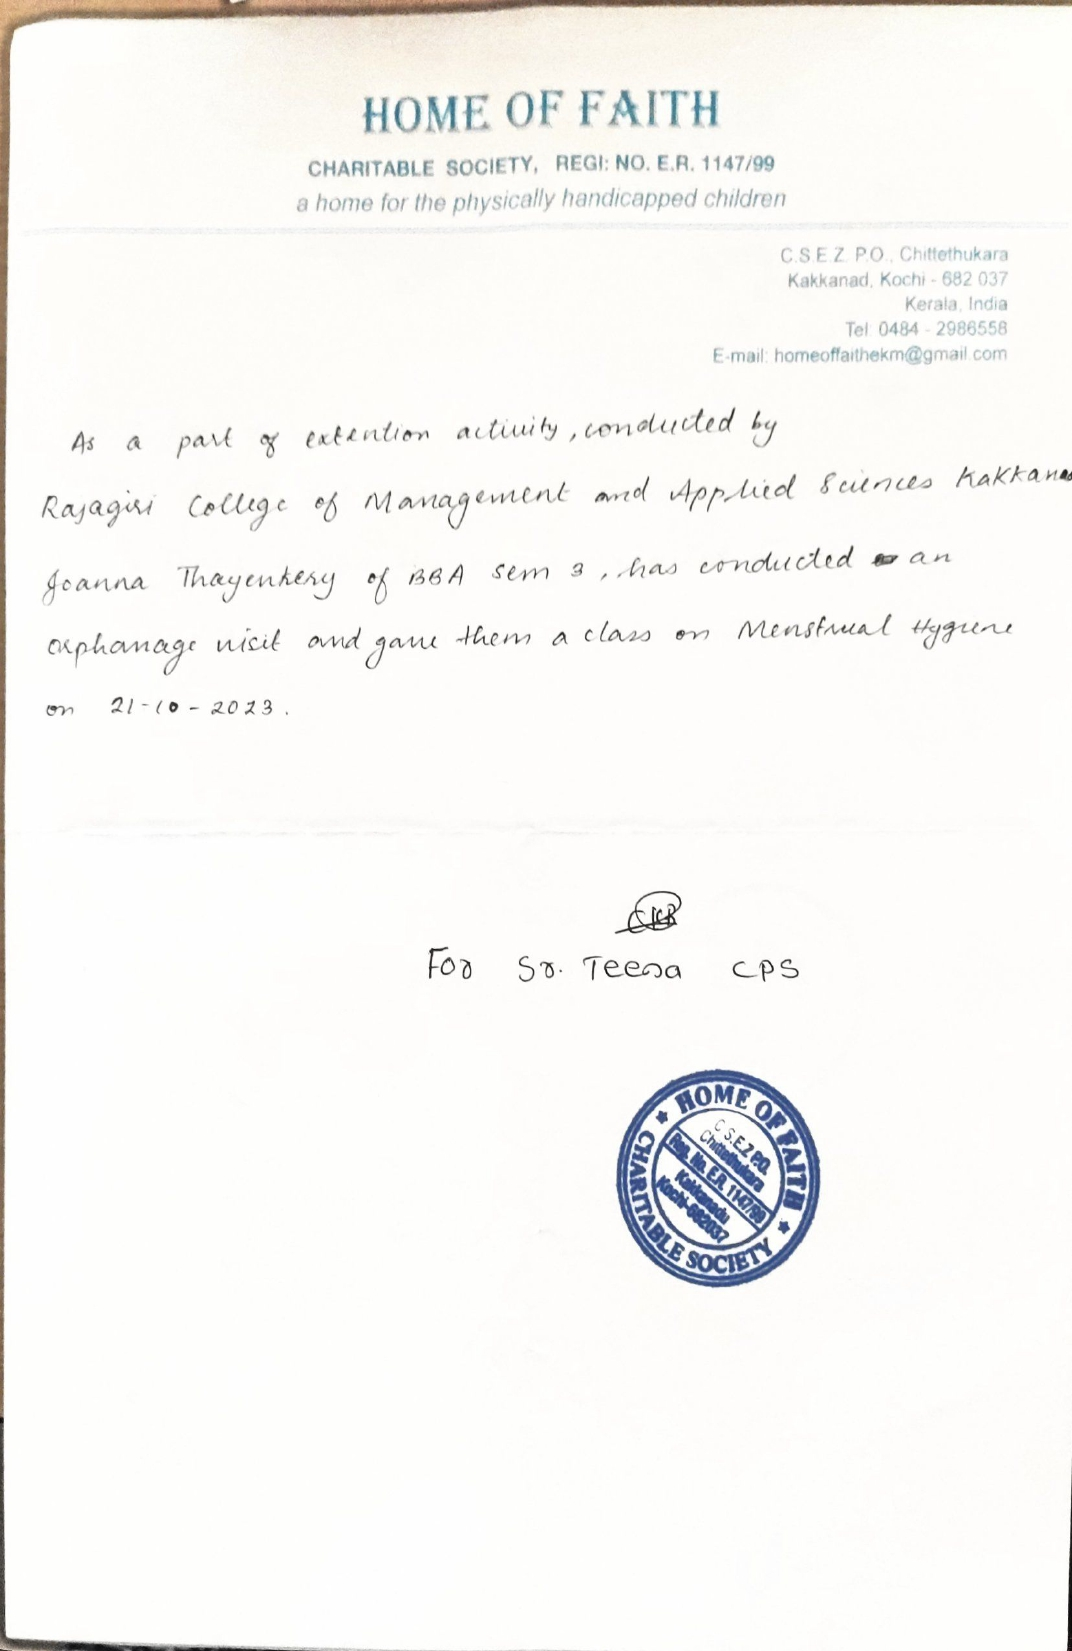 HOME OF FAITH
CHARITABLE SOCIETY, REGI: NO. E.R. 1147/99
a home for the physically handicapped children
C.S.E.Z. P.O., Chittethukara
Kakkanad, Kochi - 682 037
Kerala, India
Tel: 0484 - 2986558
E-mail: homeoffaithekm@gmail.com
As a part of extention activity, conducted by
Rajagiri College of Management and Applied Sciences Kakkanad
Joanna Thayenkery of BBA Sem 3, has conducted an
orphanage visit and gave them a class on Menstrual Hygiene
on 21-10-2023.
For Sr. Teesa CPS
HOME OF FAITH
C.S.E.Z P.O.
Chittethukara
Reg. No. E.R. 1147/99
Kakkanadu
Kochi-682037
CHARITABLE SOCIETY